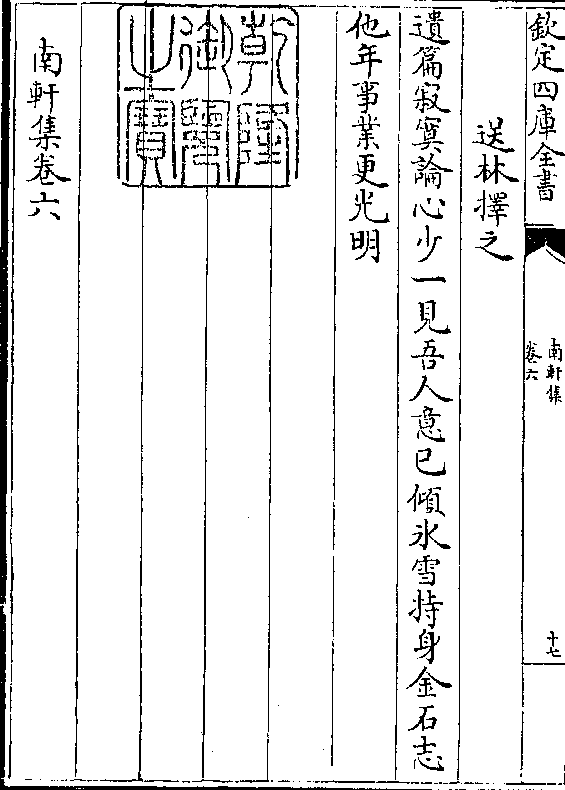 欽定四庫全書
南軒集
卷六
十七
送林擇之
遺篇寂寞論心少一見吾人意已傾氷雪持身金石志
他年事業更光明
乾隆
御覽
之寶
南軒集卷六